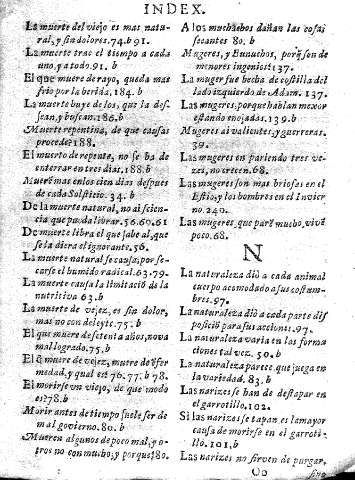 INDEX.
La muerte del viejo es mas natu-
ral, y sin dolores. 74. & 91.
La muerte trae el tiempo a cada
uno, y a todo. 91. b
El que muere de rayo, queda mas
frio por la berida, 184. b
La muerte huye de los, que la des-
sean, y buscan. 186. b
Muerte repentina, de que causas
procede? 188.
El muerto de repente, no se ha de
enterrar en tres dias. 188. b
Muerẽ mas en los cien dias despues
de cada Solsticio. 34. b
De la muerte natural, no ai scien-
cia que pueda librar. 56. 60. 61
De muerte libra el que sabe al, que
se la diera el ignorante. 56.
La muerte natural se causa por se-
carse el humido radical. 63. 79
La muerte causa la limitaciõ de la
nutritiva 63. b
La muerte de vejez, es sin dolor,
mas no con deleyte. 75. b
El que muere de setenta años, no va
mal logrado. 75. b
El q̃ muere de vejez, muere de ẽfer
medad, y qual es? 76. 77. b 78.
El morirse un viejo, de que modo
es? 78. b
Morir antes de tiempo suele ser de
mal govierno. 80. b
Mueren algunos de poco mal, y o-
tros no con mucho, y porque? 80.
A los muchachos dañan las cosas
secantes 80. b
Mugeres, y Eunuchos, porq̃ son de
menores ingenios? 137.
La muger fue hecha de costilla del
lado izquierdo de Adam. 137.
Las mugeres, porque hablan mexor
estando enojadas. 139. b
Mugeres ai valientes, y guerreras.
39.
Las mugeres en pariendo tres ve-
zes, no crecen. 68.
Las mugeres son mas briosas en el
Estio, y los hombres en el Invier
no. 240.
Las mugeres, que parẽ mucho, vivẽ
poco. 68.
N
La naturaleza dió a cada animal
cuerpo acomodado a sus costum-
bres. 97.
La naturaleza diò a cada parte dis
posiciõ para sus acciones. 97.
La naturaleza varia en las forma
ciones tal vez. 50. b
La naturaleza parece que juega en
la variedad. 83. b
Las narizes se han de destapar en
el garrotillo. 102.
Si las narizes se tapan es la mayor
causa de morirse en el garroti-
llo. 101. b
Las narizes no sirven de purgar,
Oo